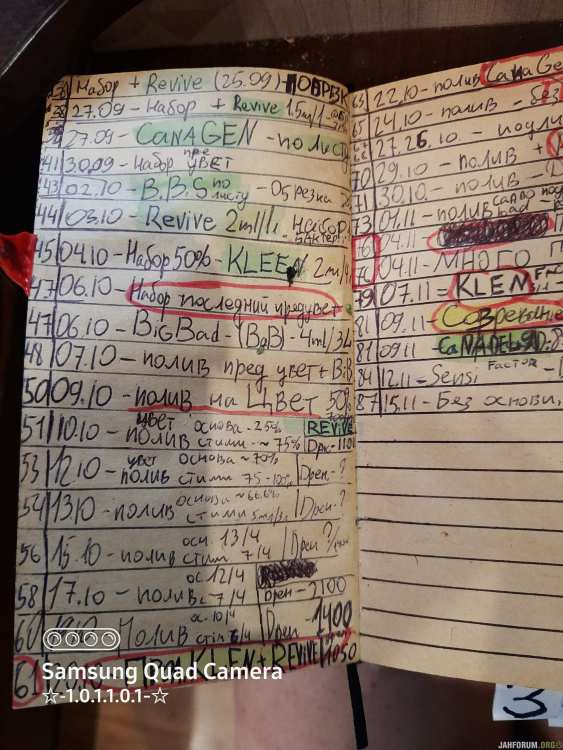 Набор + Revive (25.09) - ПОДРЕЗК
27.09 - Набор + Revive 1.5ml/1
27.09 - CANAGEN - ПОЛИСТУ
41 30.09 - Набор пре цвет
43 02.10 - B.B.S по листу - Обрезка
44 03.10 - Revive 2ml/1л. Набор бактер
45 04.10 - Набор 50% - KLEEN 2ml/
47 06.10 - Набор последний предцвет
47 06.10 - BigBad - (BgB) - 4ml/3л
48 07.10 - полив пред цвет + B.B
50 09.10 - полив на Цвет 50%
51 10.10 - цвет полив основа - 25% стими - ~ 75% REVIVE Дрен - 1100
53 12.10 - цвет полив основа ~ 70% стими 75-100% Дрен - ?
54 13.10 - полив основа ~ 66.6% стими 5ml/3л Дрен - ?
56 15.10 - полив осн. 13/4 стим 7/4 Дрен ?
58 17.10 - полив ос 12/4 с 7/4 Дрен - 2100
60 Полив ос. 10/4 стим 6/4 Дрен 1400
61 KLEN + REVIVE 1050
63 22.10 - полив CanaGe
65 24.10 - полив - без
27.26.10. - подли
70 29.10 - полив +
71 30.10 - полив -
73 01.11 - полив
76 04.11 -
76 04.11 - МНОГО
79 07.11 = KLEN
81 09.11 - Созревание
81 09.11 CANADELSD.
84 12.11 - Sensi Factor -
87 15.11 - Без основи,
Samsung Quad Camera
☆-1.0.1.1.0.1-☆
3
JAHFORUM.ORG